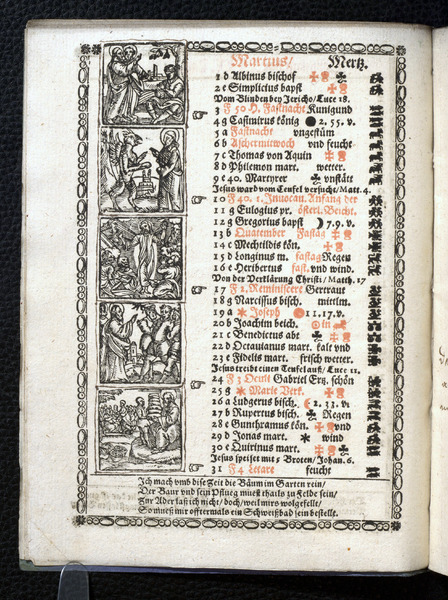 Martius/ Mertz.
1 d Albinus bischof
2 e Simplicius bapst
Vom Blinden bey Jericho/Luce 18.
3 F 50 H. Fastnacht Kunigund
4 g Casimirus könig 2. 55. v.
5 a Fastnacht ungestüm
6 b Aschermitwoch vnd feucht
7 c Thomas von Aquin
8 d Philemon mart. wetter.
9 e 40. Martyrer vnstätt
Jesus ward vom Teufel versucht/Matt. 4.
10 F 40. 1. Inuocau. Anfang der
11 g Eulogius pr. österl. Beicht.
12 g Gregorius bapst 7. 9. v.
13 b Quatember Fastag
14 c Mechtildis kön.
15 d Longinus m. fastag Regen
16 e Heribertus fast. vnd wind.
Von der Verklärung Christi/Matth. 17
17 F 2. Reminiscere Gertraut
18 g Narcissus bisch. mittlm.
19 a Joseph 11. 17. v.
20 b Joachim beich. in
21 c Benedictus abt
22 d Octauianus mart. kalt vnd
23 e Fidelis mart. frisch wetter.
Jesus treibt einen Teufel auß/Luce 11.
24 F 3 Oculi Gabriel Ertz. schön
25 g Marie Verk.
26 a Ludgerus bisch. 2. 33. v.
27 b Rupertus bisch. Regen
28 c Gunthramus kön. vnd
29 d Jonas mart. wind
30 e Quirinus mart.
Jesus speiset mit 5 Broten/Johan. 6.
31 F 4 Letare feucht
Ich mach vmb dise Zeit die Bäum im Garten rein/
Der Baur vnd sein Pflueg mueß thails zu Felde sein/
Zur Ader laß ich nicht/doch/weil mirs wolgefellt/
So mueß mir offtermals ein Schweißbad sein bestellt.